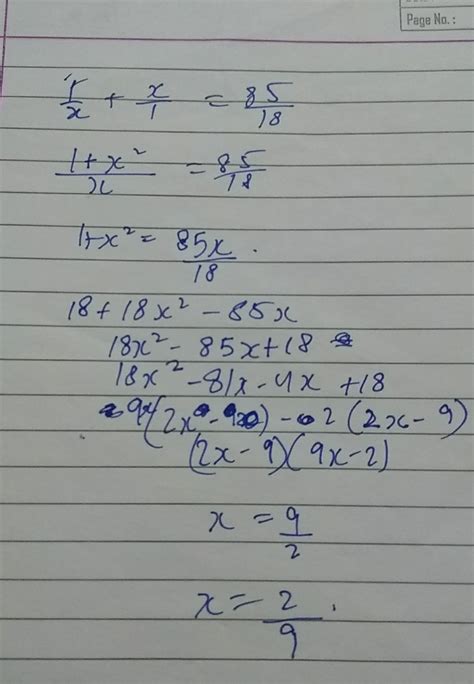 Page No. :
1/x + x/1 = 85/18
1+x²/x = 85/18
1+x² = 85x/18 .
18+18x² - 85x
18x² - 85x+18
18x² - 81x - 4x + 18
9x(2x - 9) - 2(2x - 9)
(2x - 9)(9x - 2)
x = 9/2
x = 2/9 .